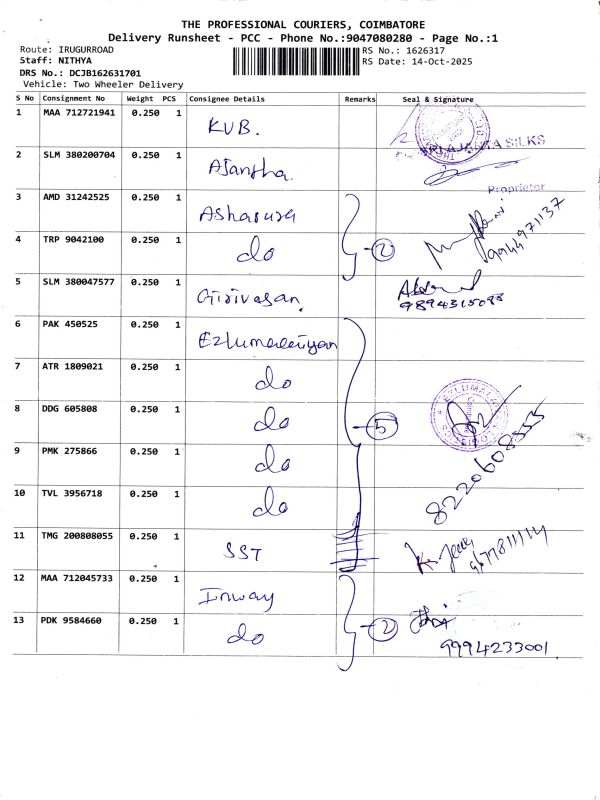 THE PROFESSIONAL COURIERS, COIMBATORE
Delivery Runsheet - PCC - Phone No.:9047080280 - Page No.:1
Route: IRUGURROAD
RS No.: 1626317
Staff: NITHYA
RS Date: 14-Oct-2025
DRS No.: DCJB162631701
Vehicle: Two Wheeler Delivery
S No Consignment No Weight PCS Consignee Details Remarks Seal & Signature
1 MAA 712721941 0.250 1 KVB.
SRI AJANTA SILKS
2 SLM 380200704 0.250 1 Ajantha.
Proprietor
3 AMD 31242525 0.250 1 Ashapura
9944971137
4 TRP 9042100 0.250 1 do 2
5 SLM 380047577 0.250 1 Girivasan.
6 PAK 450525 0.250 1 Ezlumalaiyan
7 ATR 1809021 0.250 1 do
8 DDG 605808 0.250 1 do 5
9 PMK 275866 0.250 1 do
10 TVL 3956718 0.250 1 do
11 TMG 200808055 0.250 1 SST
12 MAA 712045733 0.250 1 Inway
13 PDK 9584660 0.250 1 do 2
9994233001